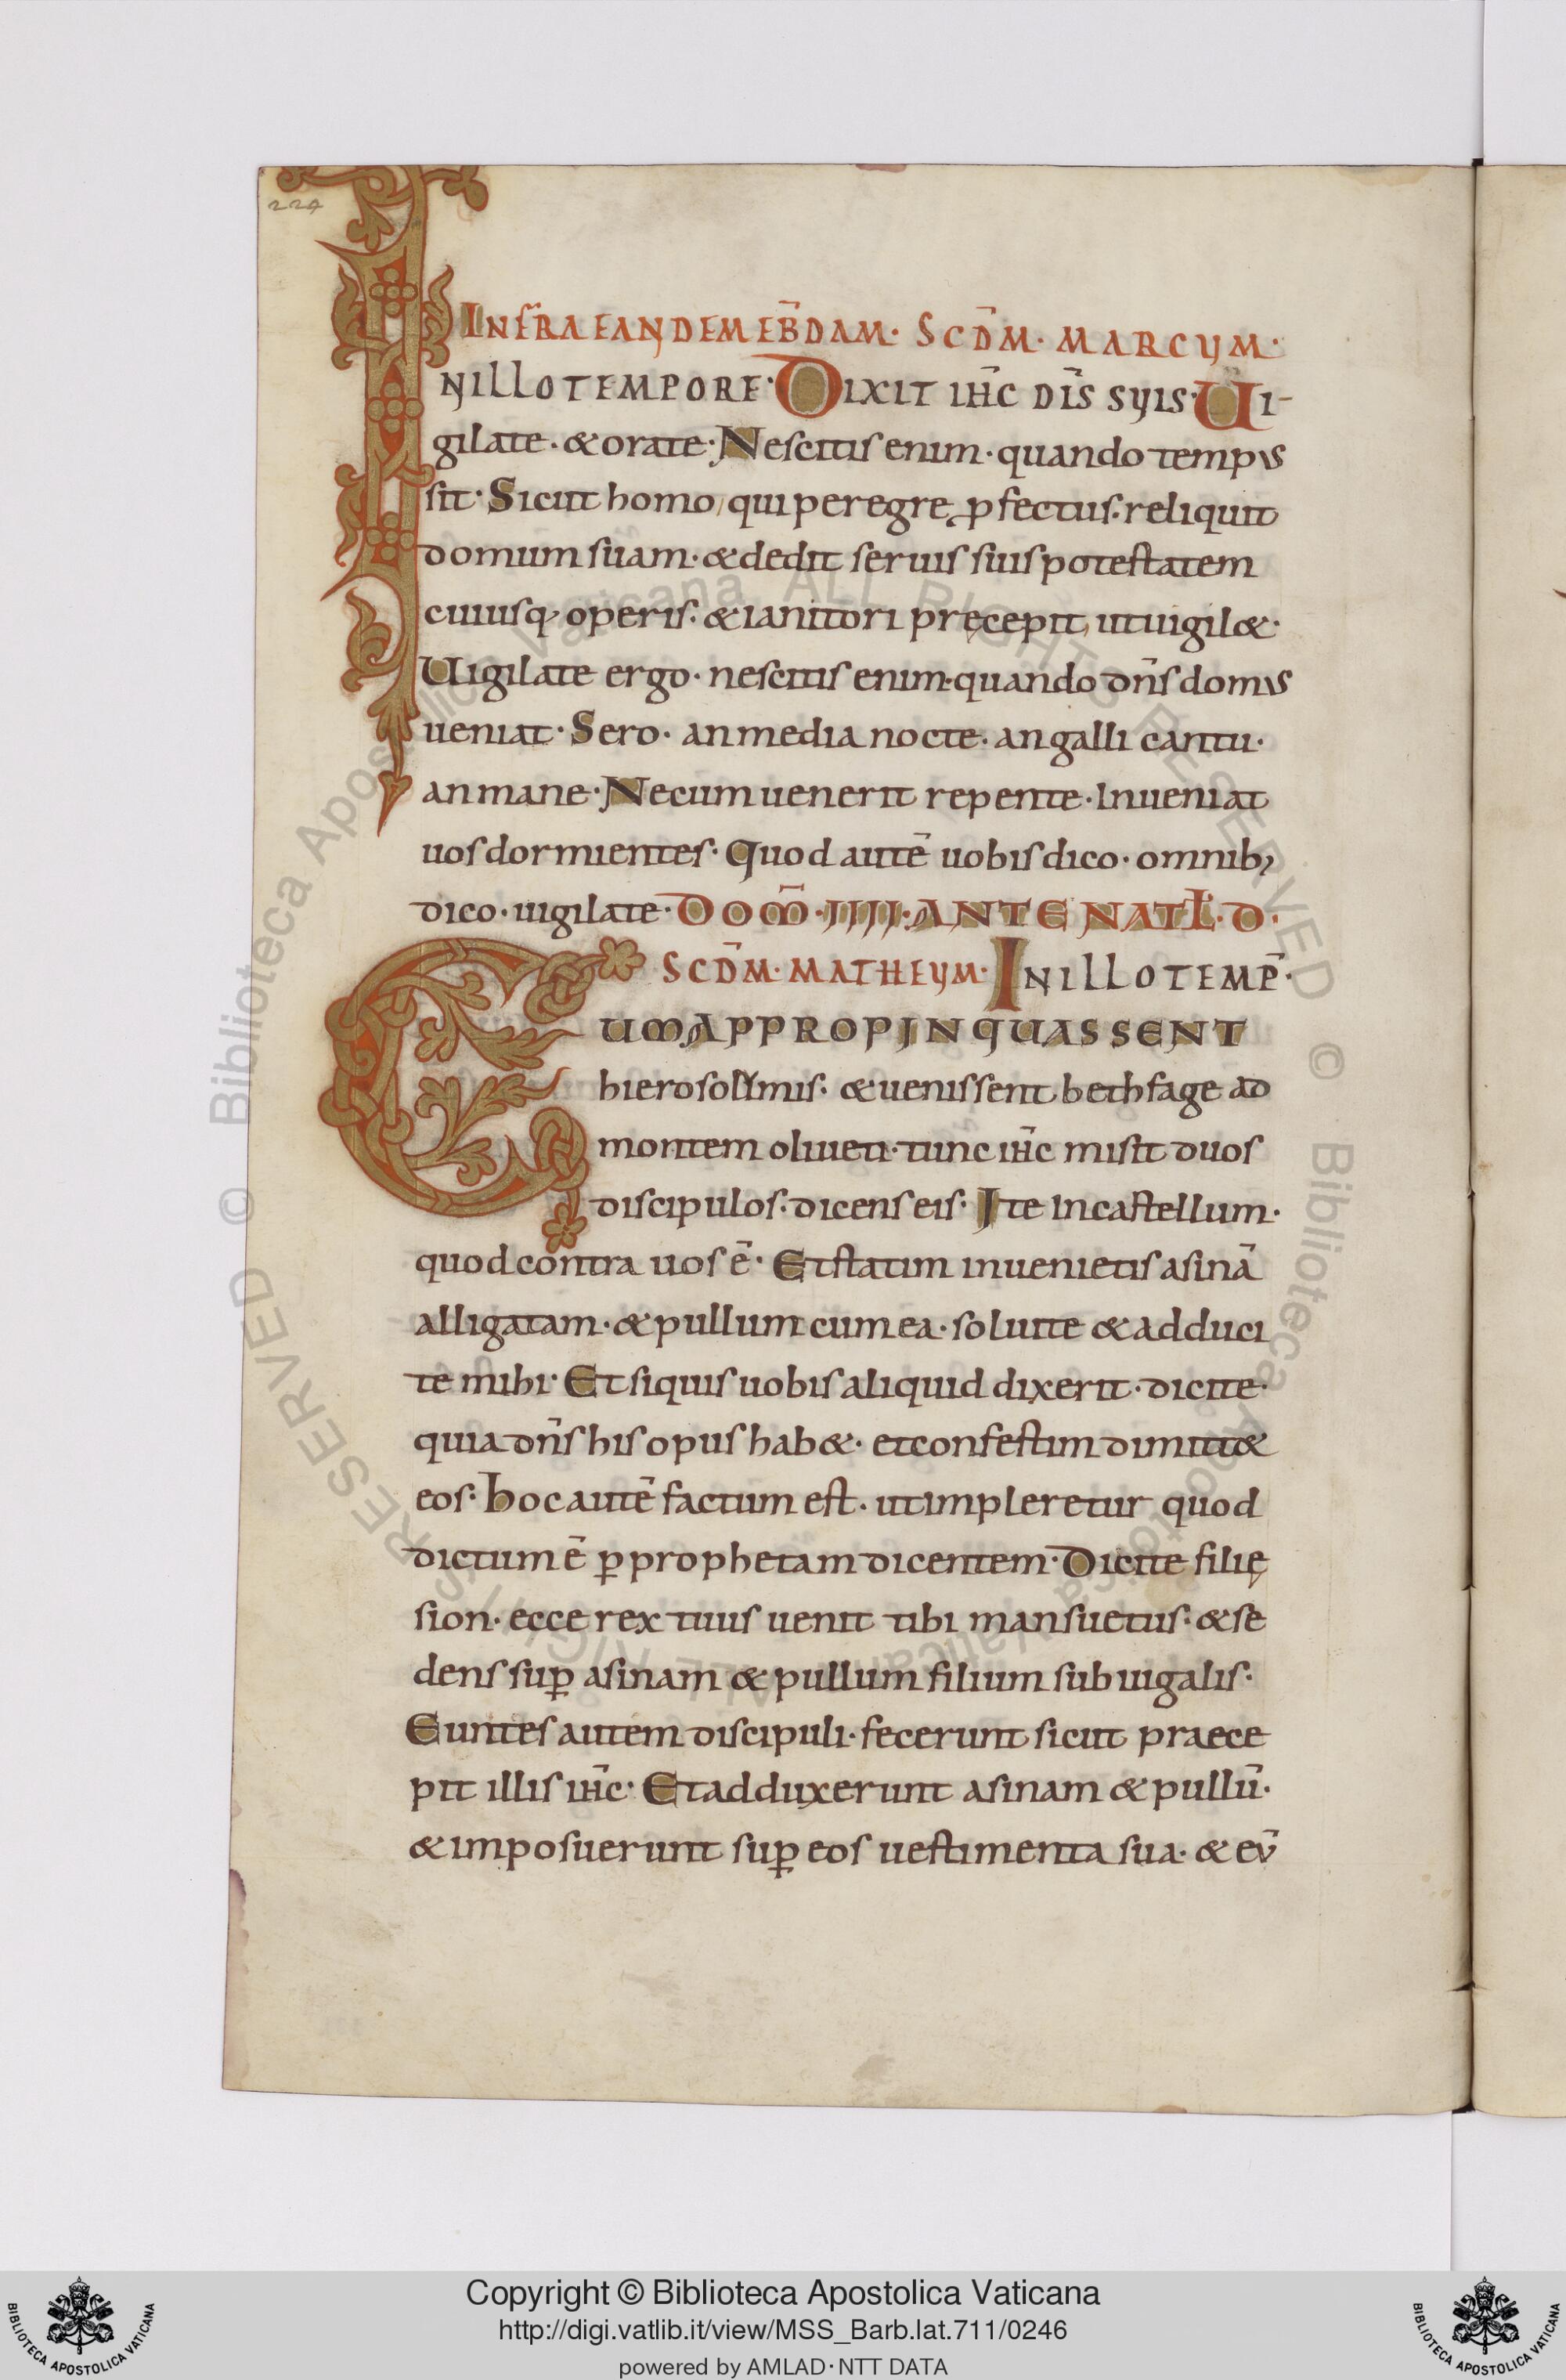 224
INFR̄A EANDEM EB̄DAM· SCD̄M· MARCUM·
NILLO TEMPORE· DIXIT IH̄C DIS̄ SUIS· UI-
gilate· & orate· Nescitis enim· quando tempus
sit· Sicut homo, qui peregre ꝓfectus· reliquit
domum suam· & dedit seruis suis potestatem
cuiusq· operis· & ianitori pręcepit, ut uigil&·
Uigilate ergo· nescitis enim· quando dn̄s domus
ueniat· Sero· an media nocte· an galli cantu·
an mane· Ne cum uenerit repente· Inueniat
uos dormientes· Quod autē uobis dico· omnib;
dico· uigilate· DOM̄· IIII· ANTE NATL̄· D·
SCD̄M· MATHEUM· IN ILLO TEMP̄·
UM APPROPINQUASSENT
hierosolimis· & uenissent bethfage ad
montem oliueti· tunc ih̄c misit duos
discipulos· dicens eis· Ite In castellum·
quod contra uos ē· Et statim inuenietis asinā
alligatam· & pullum cum ea· soluite & adduci
te mihi· Et siquis uobis aliquid dixerit· dicite·
quia dn̄s his opus hab&· et confestim dimitt&
eos· Hoc autē factum est· ut impleretur quod
dictum ē ꝑ prophetam dicentem· Dicite filię
sion· ecce rex tuus uenit tibi mansuetus· & se
dens suꝑ asinam & pullum filium subiugalis·
Euntes autem discipuli· fecerunt sicut praece
pit illis ih̄c· Et adduxerunt asinam & pullū·
& imposuerunt suꝑ eos uestimenta sua· & eū
© Biblioteca Apostolica Vaticana ALL RIGHTS RESERVED
© Biblioteca Apostolica Vaticana ALL RIGHTS RESERVED
Copyright © Biblioteca Apostolica Vaticana
http://digi.vatlib.it/view/MSS_Barb.lat.711/0246
powered by AMLAD·NTT DATA
BIBLIOTECA APOSTOLICA VATICANA
BIBLIOTECA APOSTOLICA VATICANA